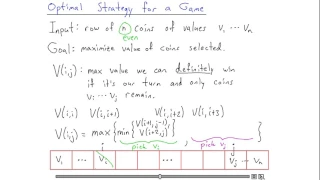 Optimal Strategy for a Game
Input: row of n coins of values V₁ ⋯ Vₙ
even
Goal: maximize value of coins selected.
V(i,j): max value we can definitely win
if it's our turn and only coins
Vᵢ ⋯ Vⱼ remain.
V(i,i) V(i,i+1) V(i,i+2) V(i,i+3)
V(i,j) = max{min{V(i+1,j-1), V(i+2,j)} , }
pick vᵢ pick vⱼ
i j
V₁ ⋯ Vᵢ ⋯ Vⱼ ⋯ Vₙ